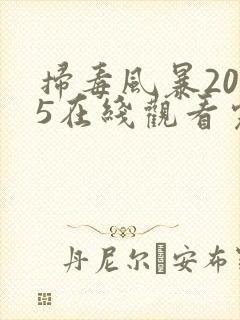 掃毒風暴20
5在綫觀看
丹尼尔 安布